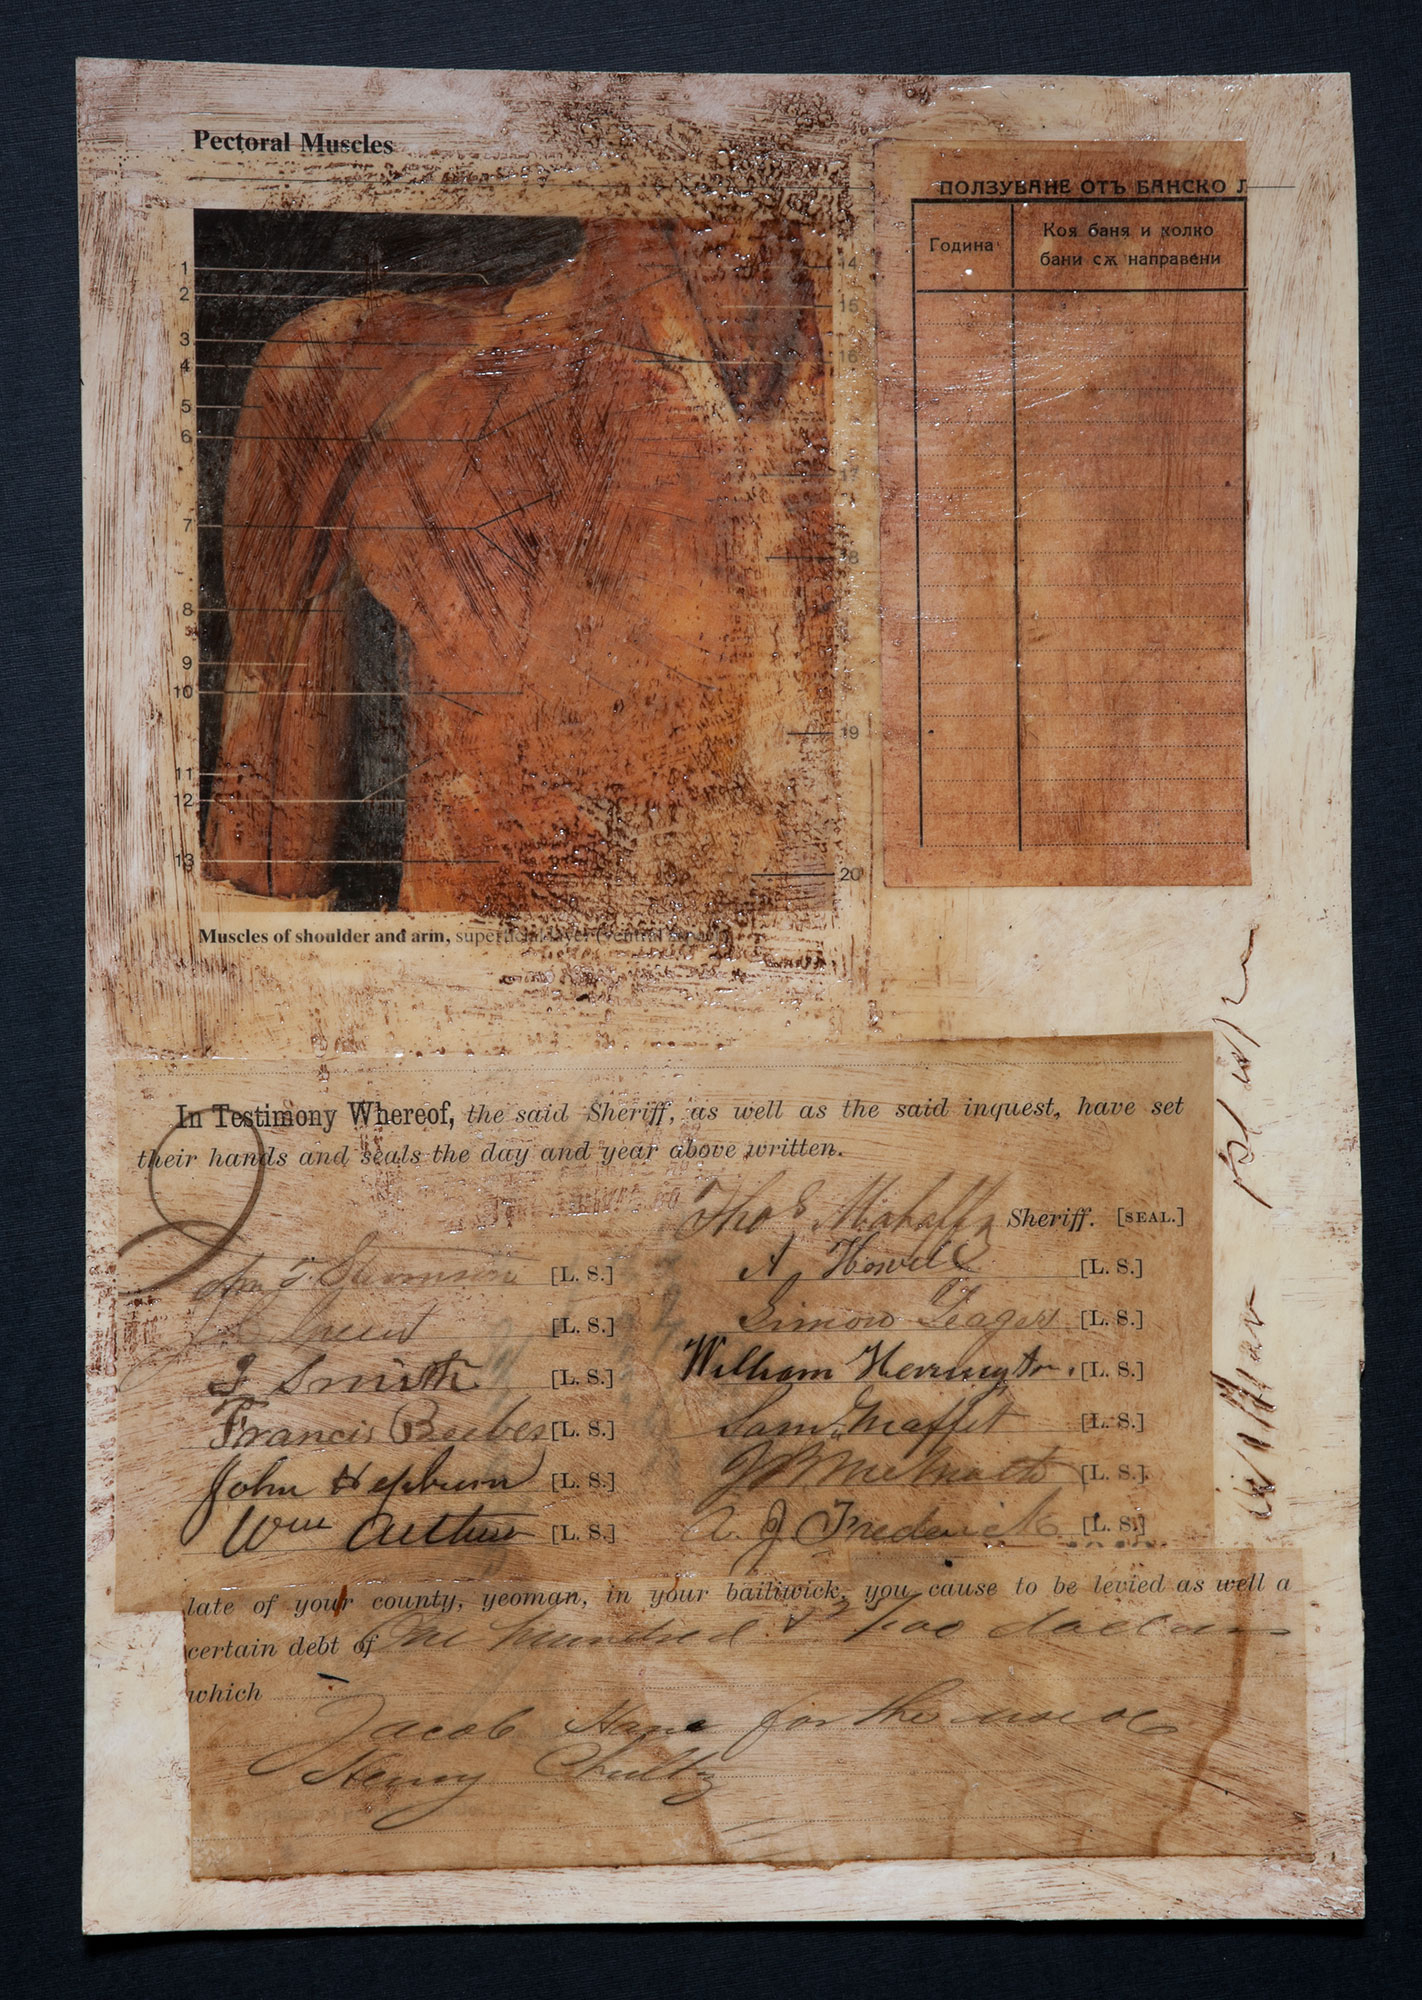 Pectoral Muscles
1
2
3
4
5
6
7
8
9
10
11
12
13
14
15
16
17
18
19
20
Muscles of shoulder and arm, superficial layer (ventral
ПОЛЗУВАНЕ ОТЪ БАНСКО Л
Година
Коя баня и колко
бани сѫ направени
In Testimony Whereof, the said Sheriff, as well as the said inquest, have set
their hands and seals the day and year above written.
Thos Mahaffy Sheriff. [SEAL.]
[L. S.] A Howell [L. S.]
[L. S.] Simon Yeager [L. S.]
J Smith [L. S.] William Herrington. [L. S.]
Francis Beeber [L. S.] Saml Maffet [L. S.]
John Hepburn [L. S.] [L. S.]
Wm Arthur [L. S.] A. J. Frederick [L. S.]
late of your county, yeoman, in your bailiwick, you cause to be levied as well a
certain debt of One hundred & /100 dollars
which
Jacob for the use of
Henry